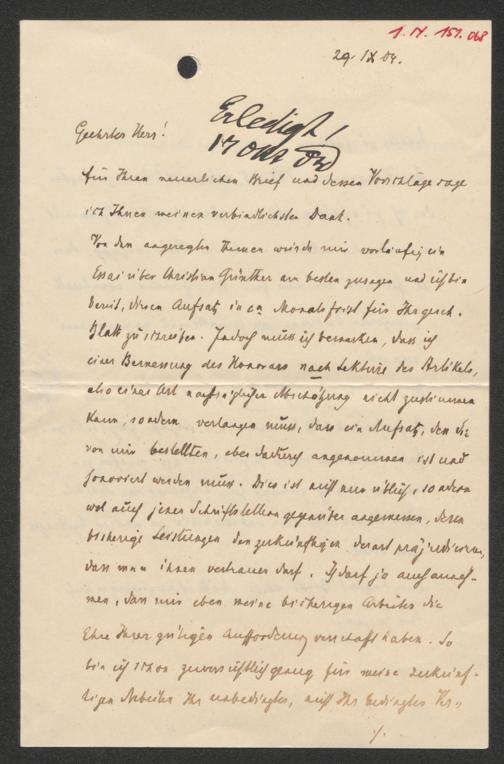 1. IV. 151. 068
29. IX 04.
Erledigt!
17 Okt
Geehrter Herr!
für Ihren neuerlichen Brief und dessen Vorschläge sage
ich Ihnen meinen verbindlichsten Dank.
Von den angeregten Themen würde mir vorläufig ein
Essai über Christian Günther am besten zusagen und ich bin
bereit, diesen Aufsatz in ca Monatsfrist für Ihr gesch.
Blatt zu schreiben. Jedoch muss ich bemerken, dass ich
einer Bemessung des Honorars nach Lektüre des Artikels,
also einer Art nachträglicher Abschätzung nicht zustimmen
kann, sondern verlangen muss, dass ein Aufsatz, den Sie
von mir bestellten, eben dadurch angenommen ist und
honoriert werden muss. Dies ist nicht nur üblich, sondern
wol auch jenen Schriftstellern gegenüber angemessen, deren
bisherige Leistungen den zukünftigen derart präjudicieren,
dass man ihnen vertrauen darf. Ich darf ja auch anneh-
men, dass mir eben meine bisherigen Arbeiten die
Ehre Ihrer gütigen Aufforderung verschafft haben. So
bin ich schon zuversichtlich genug für meine zukünf-
tigen Arbeiten Ihr unbedingtes, nicht Ihr bedingtes Ver-
./.